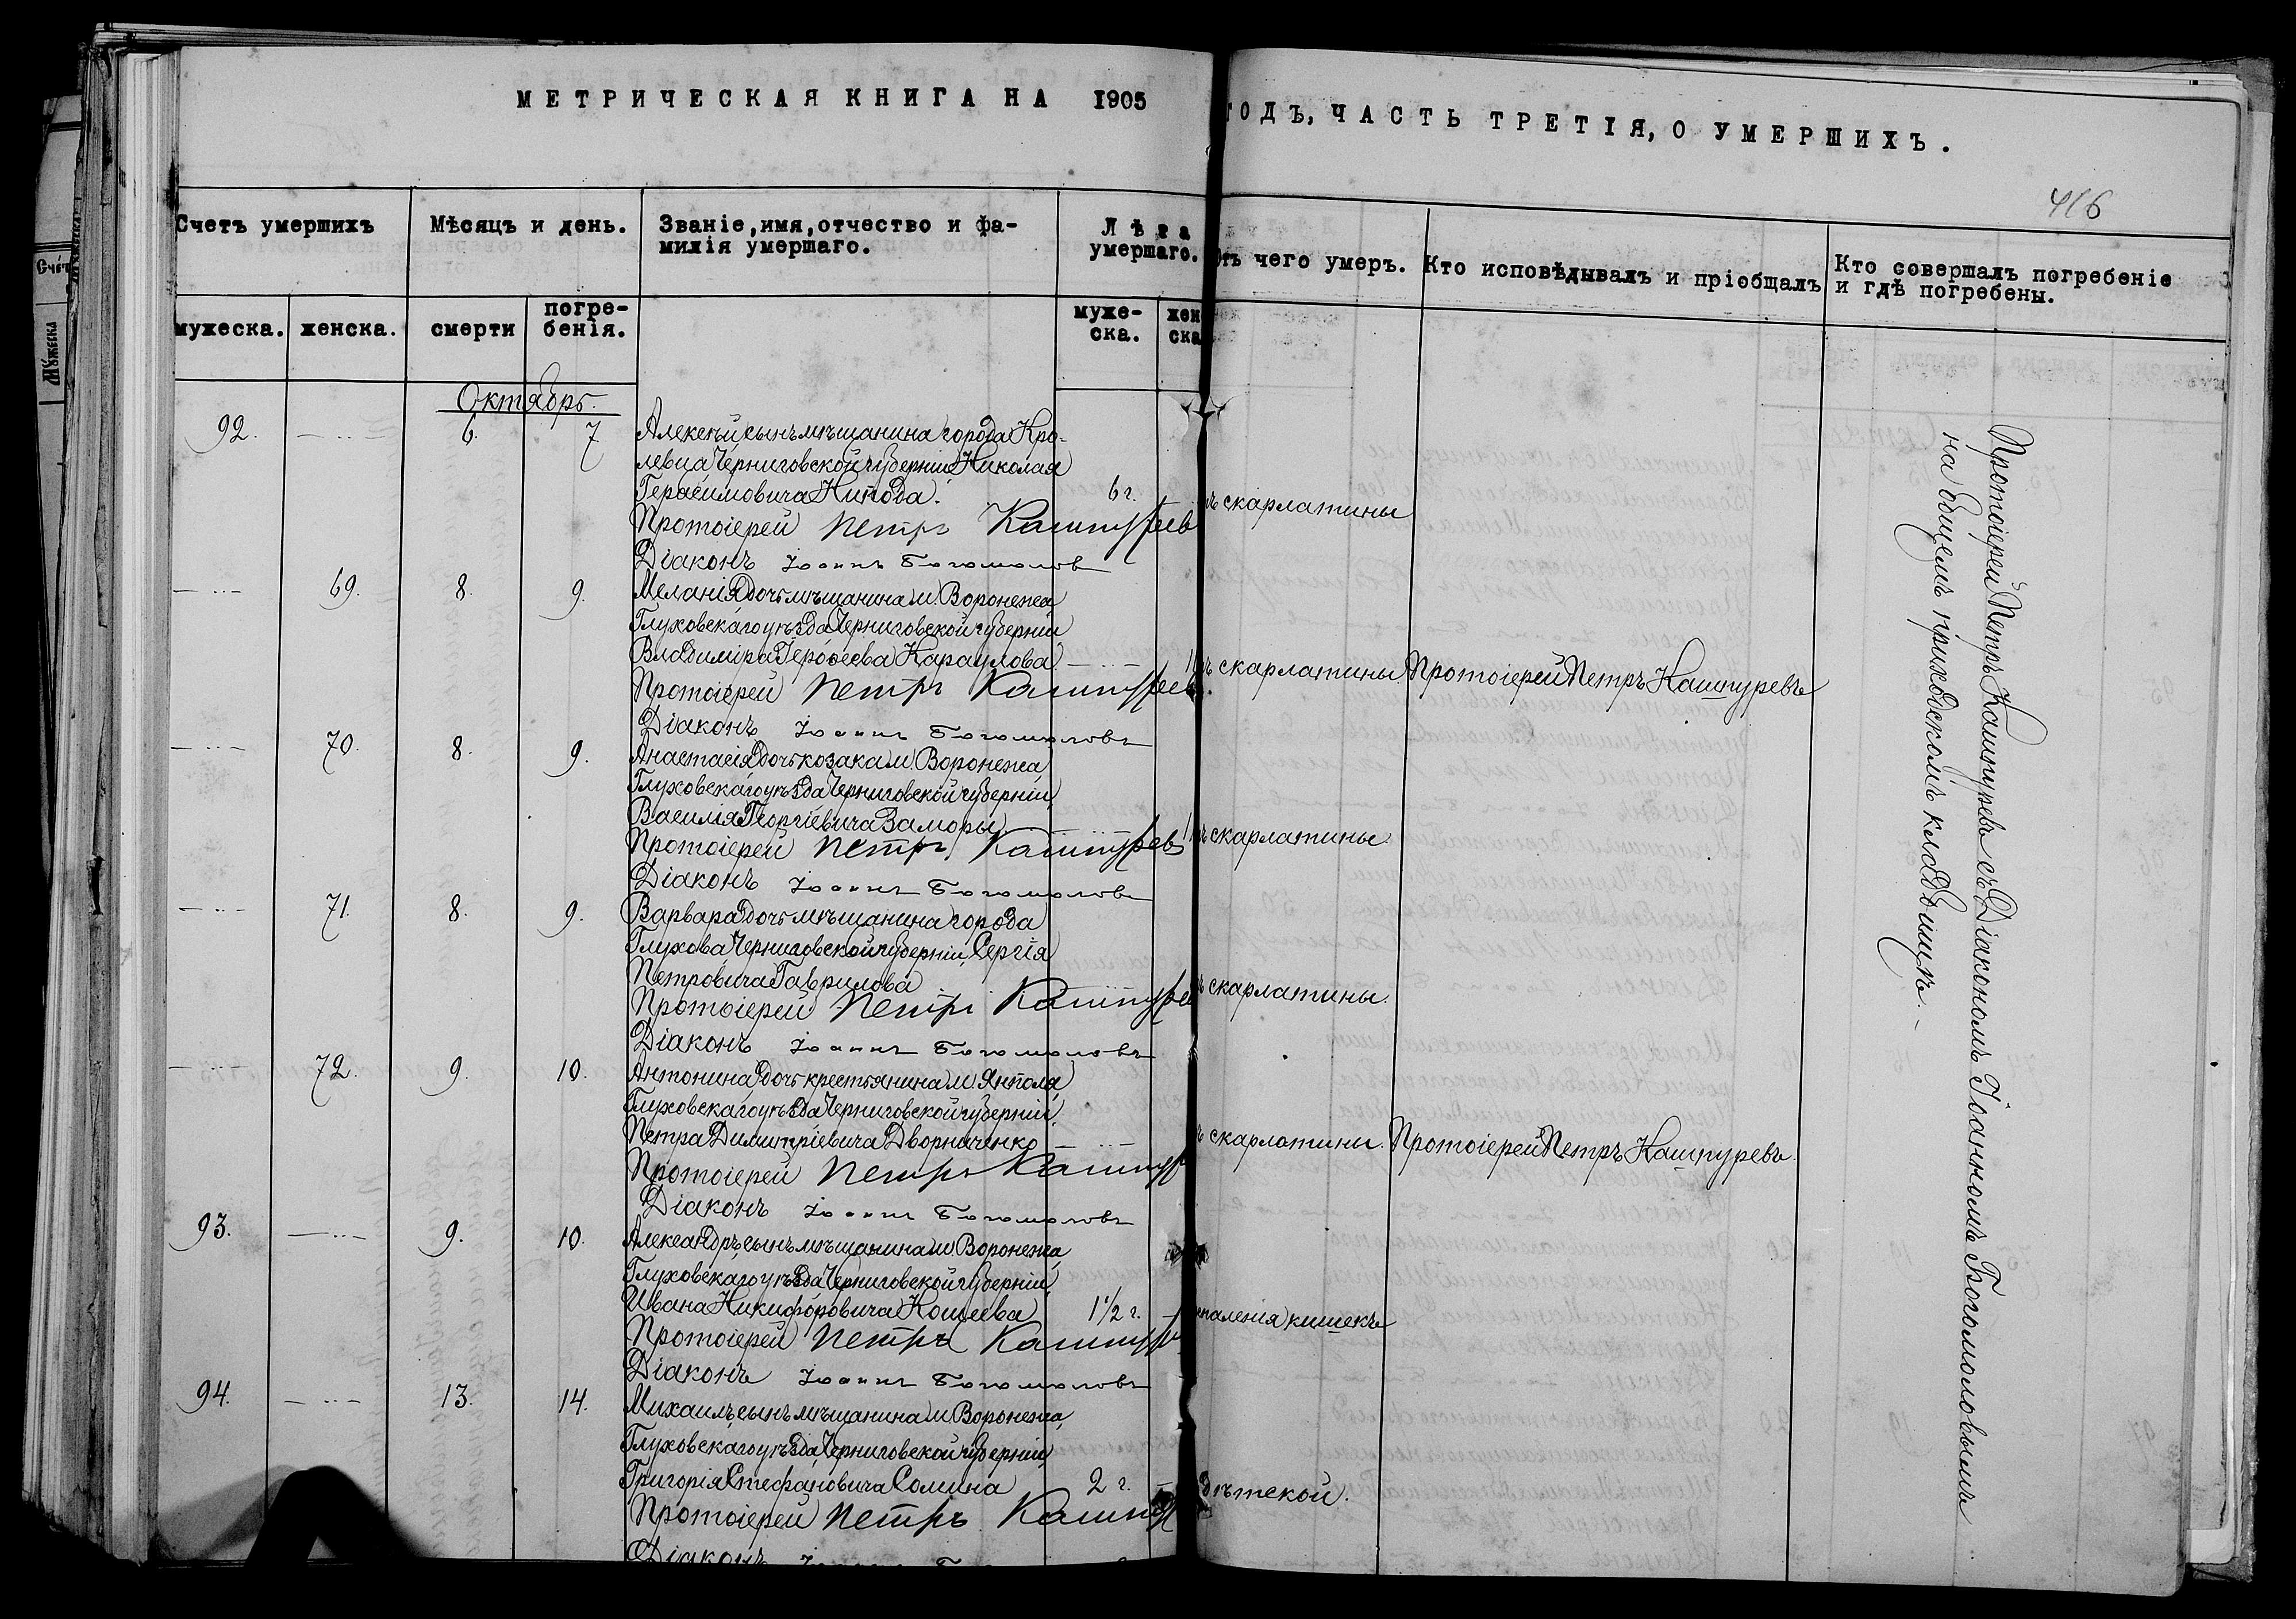 МЕТРИЧЕСКАЯ КНИГА НА 1905
ГОДЪ, ЧАСТЬ ТРЕТІЯ, О УМЕРШИХЪ.
416
Счетъ умершихъ
Мѣсяцъ и день.
Званіе, имя, отчество и фа-
милія умершаго.
Лѣта
умершаго.
Отъ чего умеръ.
Кто исповѣдывалъ и пріобщалъ
Кто совершалъ погребеніе
и гдѣ погребены.
мужеска.
женска.
смерти
погре-
бенія.
муже-
ска.
жен
ска
Октябрь.
92. 6. 7 Алексѣй сынъ мѣщанина города Кро-
левца Черниговской губерніи Николая
Герасимовича 6 г. скарлатины
Протоіерей Петръ Кашпурев
Діаконъ Іоаннъ Богомолов
69. 8. 9. Меланія дочь мѣщанина м. Воронежа
Глуховскаго уѣзда Черниговской губерніи
Владиміра Караулова скарлатины. Протоіерей Петръ Кашпуревъ
Протоіерей Петръ Кашпурев
Діаконъ Іоаннъ Богомоловъ
70. 8. 9. Анастасія дочь козака м. Воронежа
Глуховскаго уѣзда Черниговской губерніи
Василія Георгіевича Заморы скарлатины.
Протоіерей Петръ Кашпурев
Діаконъ Іоаннъ Богомоловъ
71. 8. 9. Варвара дочь мѣщанина города
Глухова Черниговской губерніи Сергія
Петровича Гаврилова скарлатины.
Протоіерей Петръ Кашпуре
Діаконъ Іоаннъ Богомоловъ
72. 9. 10. Антонина дочь крестьянина м. Янполя
Глуховскаго уѣзда Черниговской губерніи,
Петра Димитріевича Дворниченко скарлатины. Протоіерей Петръ Кашпуревъ.
Протоіерей Петръ Кашпур
Діаконъ Іоаннъ Богомоловъ
93. 9. 10. Александръ сынъ мѣщанина м. Воронежа,
Глуховскаго уѣзда Черниговской губерніи,
Ивана Никифоровича Кошеева 1½ г. паленія кишекъ
Протоіерей Петръ Кашпур
Діаконъ Іоаннъ Богомоловъ
94. 13. 14. Михаилъ сынъ мѣщанина м. Воронежа,
Глуховскаго уѣзда Черниговской губерніи,
Григорія Стефановича Сомина 2 г. дѣтской.
Протоіерей Петръ Кашпур
Діаконъ
Протоіерей Петръ Кашпуревъ съ Діакономъ Іоанномъ Богомоловымъ
на общемъ приходскомъ кладбищѣ.